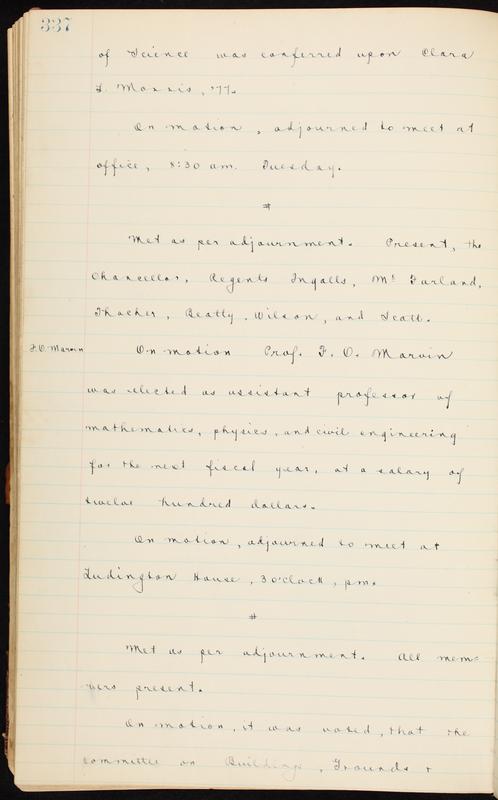 337
of Science was conferred upon Clara
Morris, '77.
On motion, adjourned to meet at
office, 8:30 am. Tuesday.
#
Met as per adjournment. Present, the
Chancellor, Regents Ingalls, McFarland,
Thacher, Beatty, Wilson, and Scott.
F.O. Marvin
On motion Prof. F. O. Marvin
was elected as assistant professor of
mathematics, physics, and civil engineering
for the next fiscal year, at a salary of
twelve hundred dollars.
On motion, adjourned to meet at
Ludington House, 3 o'clock, pm.
#
Met as per adjournment. All mem=
bers present.
On motion, it was voted, that the
committee on Buildings, Grounds +